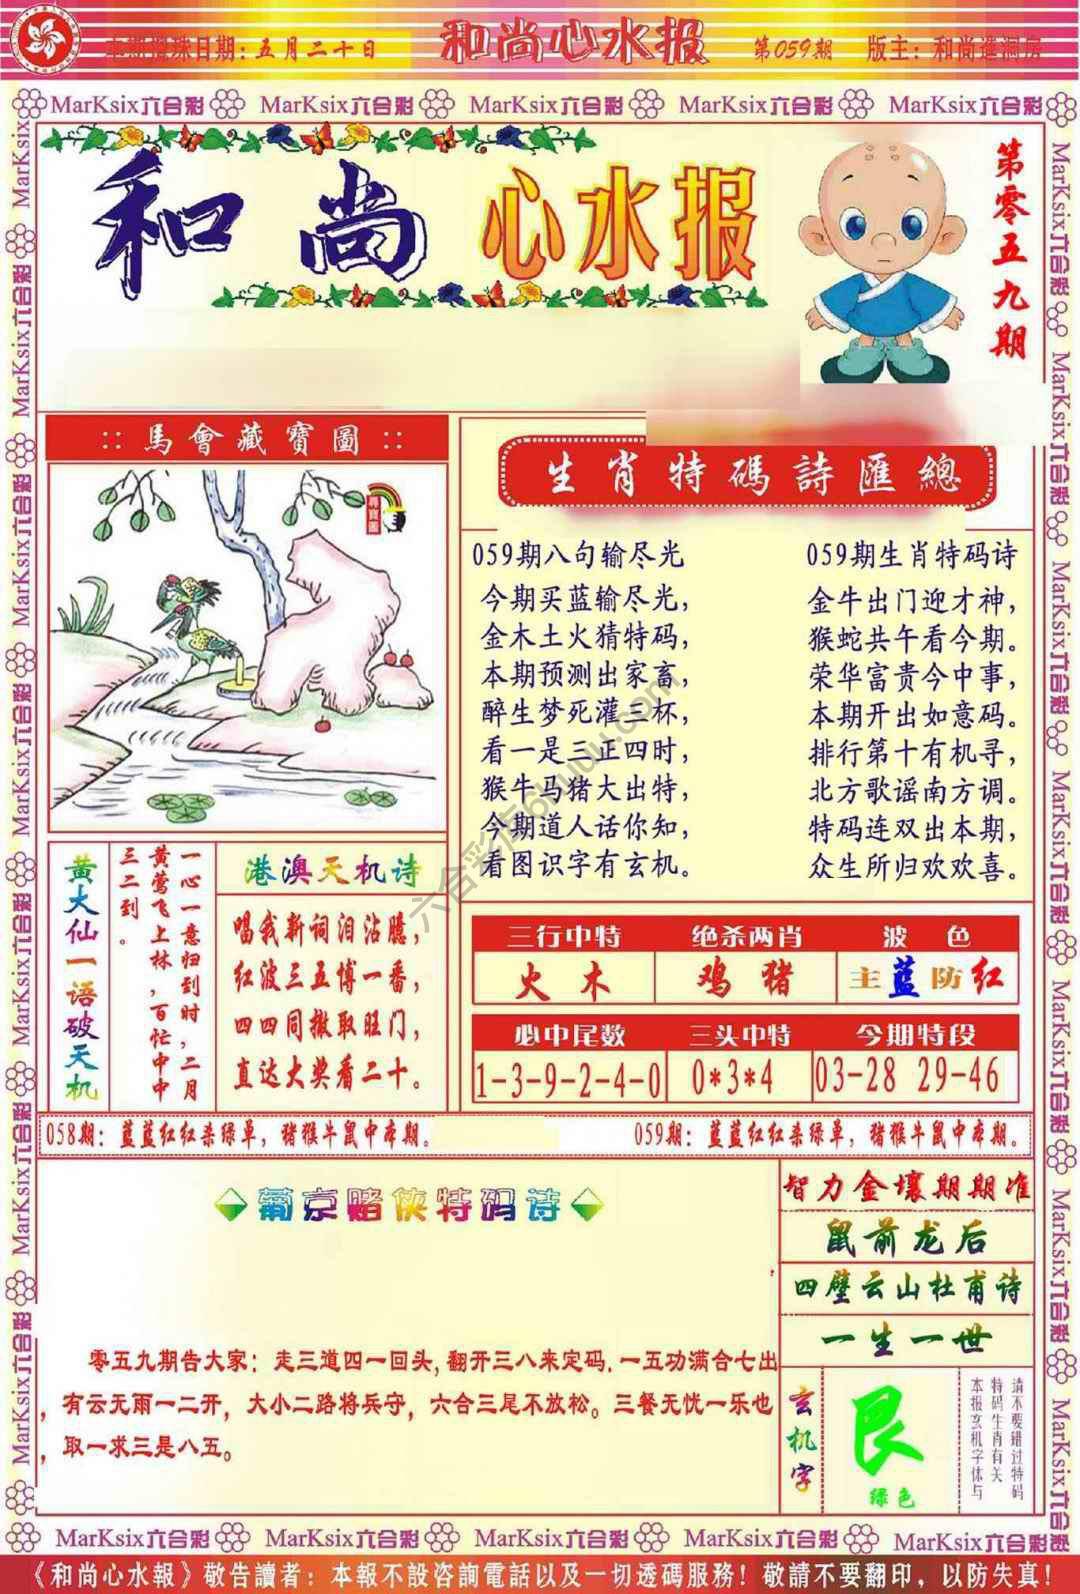 本期搅珠日期:五月二十日
和尚心水报
第059期
版主:和尚進洞房
MarKsix六合彩 MarKsix六合彩 MarKsix六合彩 MarKsix六合彩 MarKsix六合彩
和尚心水报
第零五九期
::馬會藏寶圖::
生肖特碼詩匯總
059期八句输尽光
今期买蓝输尽光，
金木土火猜特码，
本期预测出家畜，
醉生梦死灌三杯，
看一是三正四时，
猴牛马猪大出特，
今期道人话你知，
看图识字有玄机。
059期生肖特码诗
金牛出门迎才神，
猴蛇共午看今期。
荣华富贵今中事，
本期开出如意码。
排行第十有机寻，
北方歌谣南方调。
特码连双出本期，
众生所归欢欢喜。
黄大仙一语破天机
一心一意归到时，二月
黄莺飞上林，百忙中中
三二到。
港澳天机诗
唱我新词泪沾臆，
红波三五博一番，
四四同撒取旺门，
直达大奖看二十。
三行中特 绝杀两肖 波色
火木 鸡猪 主蓝防红
必中尾数 三头中特 今期特段
1-3-9-2-4-0 0*3*4 03-28 29-46
058期：蓝蓝红红杀绿单，猪猴牛鼠中本期。
059期：蓝蓝红红杀绿单，猪猴牛鼠中本期。
葡京赌侠特码诗
零五九期告大家：走三道四一回头,翻开三八来定码.一五功满合七出
，有云无雨一二开，大小二路将兵守，六合三尾不放松。三餐无忧一乐也
，取一求三是八五。
智力金壤期期准
鼠前龙后
四壁云山杜甫诗
一生一世
玄机字
艮
绿色
请不要错过特码
特码生肖有关
本报玄机字体与
MarKsix六合彩 MarKsix六合彩 MarKsix六合彩 MarKsix六合彩 MarKsix六合彩
《和尚心水報》敬告讀者：本報不設咨詢電話以及一切透碼服務！敬請不要翻印，以防失真！